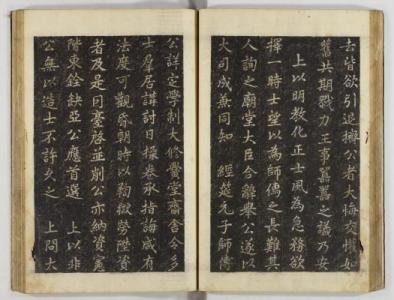 去皆欲引退擠公者大悔交懽如
舊共期戮力王事之議乃安
上以明教化正士風為急務欲
擇一時士望以為師儒之長難其
人詢之廟堂大臣合辭舉公遂以
大司成兼同知 經筵元子師傅
公詳定學制大修黌堂齋舍令多
士羣居講討日操卷承指誨咸有
法度可觀朝時以鞫獄勞陞資
者及是因臺啓並削公亦納資憲
階東銓缺亞公應首選 上以非
公無以造士不許久之 上問大